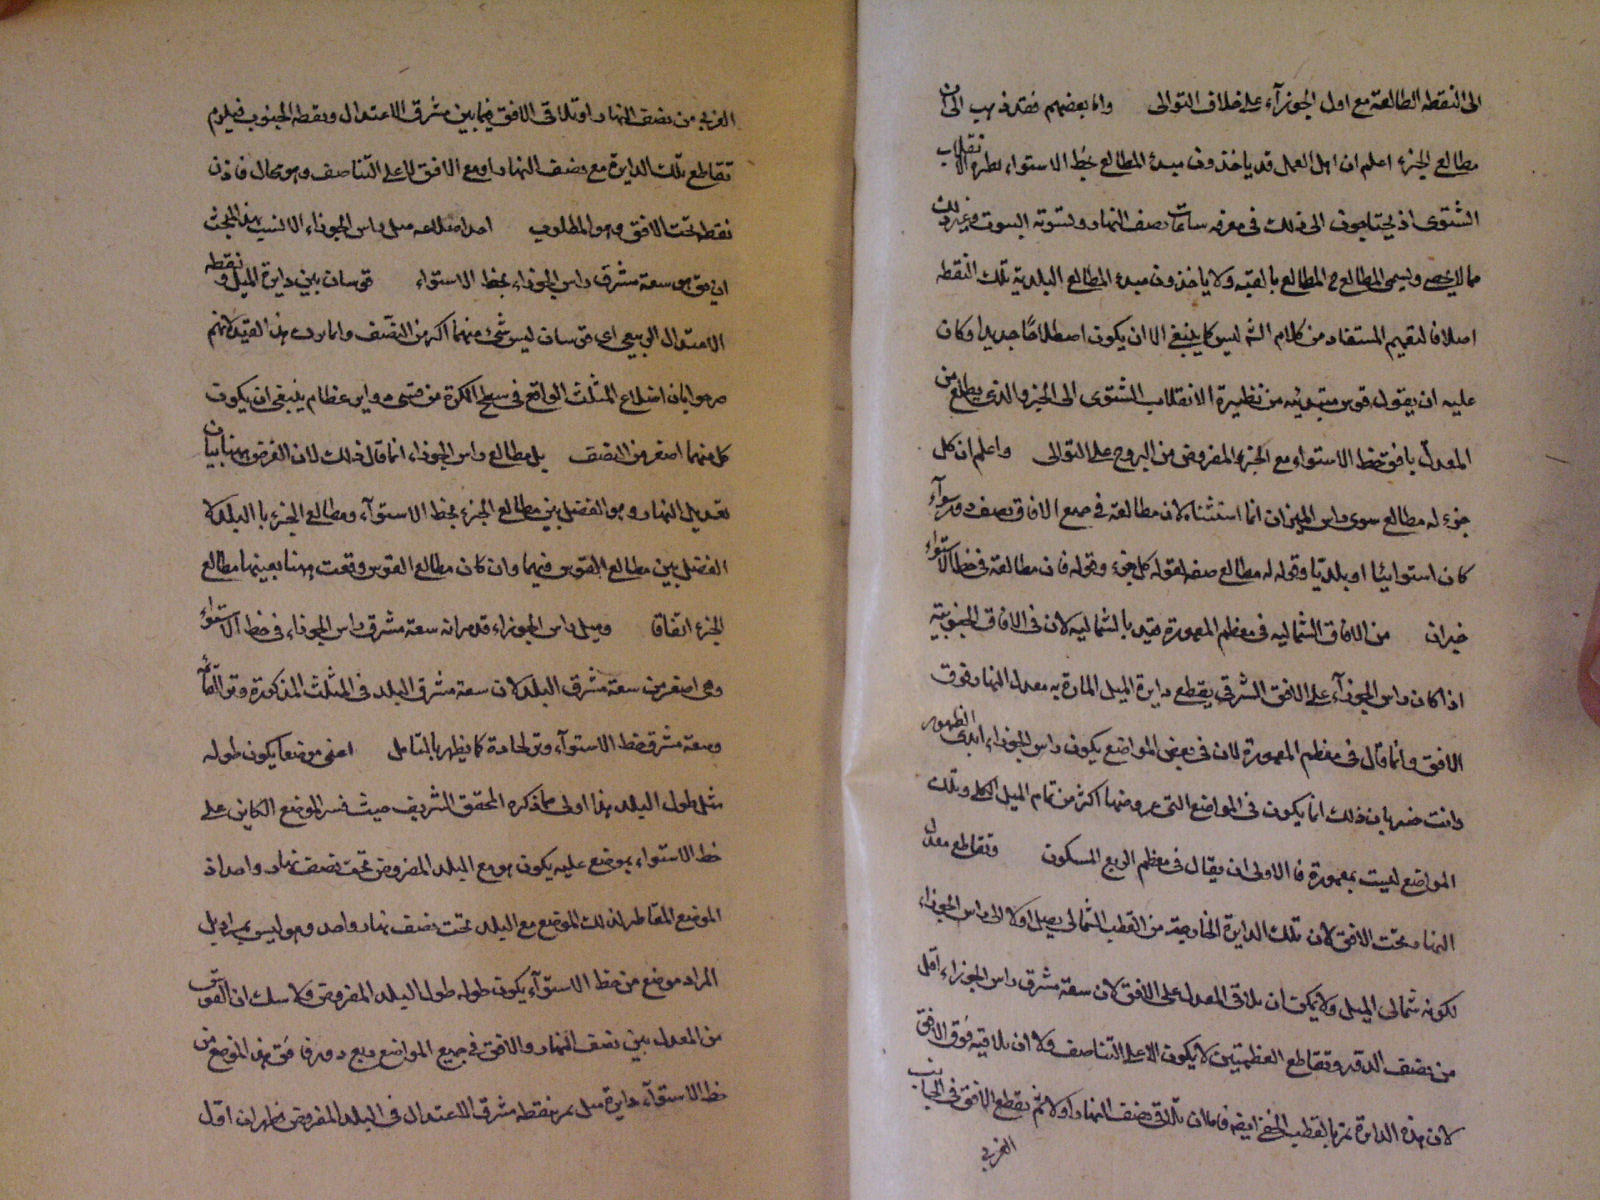 الى النقطه الطالعة مع اول الجوزآء على خلاف التوالى واما بعضهم فقد ذهب الى ان
مطالع الجزء اعلم ان اهل العمل قد ياخذون مبدء المطالع خط الاستواء نظيرة الانقلاب
الشتوى اذ يحتاجون الى ذلك فى معرفه ساعات نصف النهار وتسوية البيوت وغير ذلك
مما لا يحصى ويسمى المطالع ح المطالع بالقبه ولا ياخذون مبدء المطالع البلدية تلك النقطه
اصلا فالتعميم المستفاد من كلام الشه ليس كما ينبغى الا ان يكون اصطلاحًا جديدا وكان
عليه ان يقول قوس مبتدئه من نظيرة الانقلاب الشتوى الى الجزء الذى يطلع من
المعدل بافق خط الاستواء مع الجزء المفروض من البروج على التوالى واعلم ان كل
جزء له مطالع سوى راس الميزان انما استثناه لان مطالعة فى جميع الافاق نصف دور سوآء
كان استوائيا او بلديّا وقوله له مطالع صفه لقوله كل جزء وقوله فان مطالعة فى خط الاستواء
خبر ان من الافاق الشماليه فى معظم المعمورة قيد بالشماليه لان فى الافاق الجنوبية
اذا كان راس الجوزآء على الافق الشرقى يقطع دايرة الميل المارة به معدل النهار فوق
الافق وانما قال فى معظم المعمورة لان فى بعض المواضع يكون راس الجوزاء ابدى الظهور
وانت خبير بان ذلك انما يكون فى المواضع التى عروضها اكثر من تمام الميل الكلى وتلك
المواضع ليست بمعمورة فالاولى ان يقال فى معظم الربع المسكون وتقاطع معدل
النهار تحت الافق لان تلك الدايرة الخارجة من القطب الشمالى يصل اولا الى راس الجوزاء
لكونه شمالى الميل ولا يمكن ان يلاقى المعدل على الافق لان سعة مشرق راس الجوزاء اقل
من نصف الدور وتقاطع العظيمتين لا يكون الا على التناصف ولا ان يلاقيه فوق الافق
لان هذه الدائرة تمر بالقطب الخفى ايضه فاما ان تلاقى نصف النهار اولا ثم يقطع الافق فى الجانب
الغربى
الغربى من نصف النهار او تلاقى الافق فيما بين مشرق الاعتدال ونقطه الجنوب فيلزم
تقاطع تلك الدايرة مع نصف النهار او مع الافق لا على التناصف وهو محال فاذن
نقطه تحت الافق وهو المطلوب احد اضلاعه ميل راس الجوزاء الانسب بهذا البحث
ان هو سعة مشرق راس الجوزاء بخط الاستواء قوسان بين دايرة الميل ونقطه
الاعتدال الربيعى اى قوسان ليس شىء منهما اكبر من النصف وانما بهذا القيد لانهم
صرحوا بان اضلاع المثلث الواقع فى سطح الكرة من قسى دواير عظام ينبغى ان يكون
كل منهما اصغر من النصف بل مطالع راس الجوزاء انما قال ذلك لان الغرض ههنا بيان
تعديل النهار وهو الفضل بين مطالع الجزء بخط الاستوآء ومطالع الجزء بالبلد لا
الفضل بين مطالع القوس فيهما وان كان مطالع القوس وقعت ههنا بعينها مطالع
الجزء اتفاقا وميل راس الجوزاء قد مر انه سعة مشرق راس الجوزاء فى خط الاستواء
وهى اصغر من سعة مشرق البلد لان سعة مشرق البلد فى المثلث المذكورة وتر القائمة
وسعة مشرق خط الاستوآء وتر لحادة كما يظهر بالتامل اعنى موضعا يكون طوله
مثل طول البلد هذا اولى مما ذكره المحقق الشريف حيث فسر الموضع الكاين على
خط الاستواء بموضع عليه يكون هو مع البلد المفروض تحت نصف نهار واحد اذ
الموضع المقاطر لذلك الموضع مع البلد تحت نصف نهار واحد وهو ليس بمراد بل
المراد موضع من خط الاستوآء يكون طوله طول البلد المفروض ولا شك ان القوس
من المعدل بين نصف النهار والافق فى جميع المواضع ربع دور فافق هذا الموضع من
خط الاستوآء دايرة ميل يمر بنقطه مشرق الاعتدال فى البلد المفروض نظير ان اقول